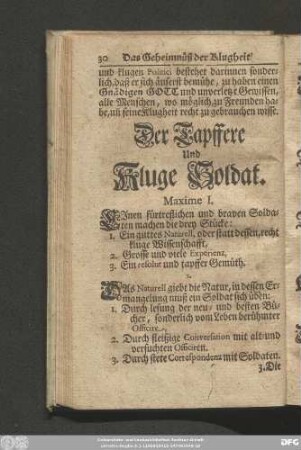 30 Das Geheimnüß der Klugheit
und klugen Politici bestehet darinnen sonder-
lich, daß er sich äuserst bemühe, zu haben einen
Gnädigen GOTT und unverletzt Gewissen,
alle Menschen, wo möglich zu Freunden ha-
be, un seine Klugheit recht zu gebrauchen wisse.
Der Tapffere
Und
Kluge Soldat.
Maxime I.
EInen fürtreflichen und braven Solda-
ten machen die drey Stücke:
1. Ein guttes Naturell, oder statt dessen, recht
kluge Wissenschafft.
2. Grosse und viele Experienz,
3. Ein resolut und tapffer Gemüth.
2.
DAs Naturell giebt die Natur, in dessen Er-
mangelung muß ein Soldat sich üben:
1. Durch lesung der neu- und besten Bü-
cher, sonderlich vom Leben berühmter
Officirer.
2. Durch fleißige Conversation mit alt und
versuchten Officiren.
3. Durch stete Correspondenz mit Soldaten.
3. Die
DFG